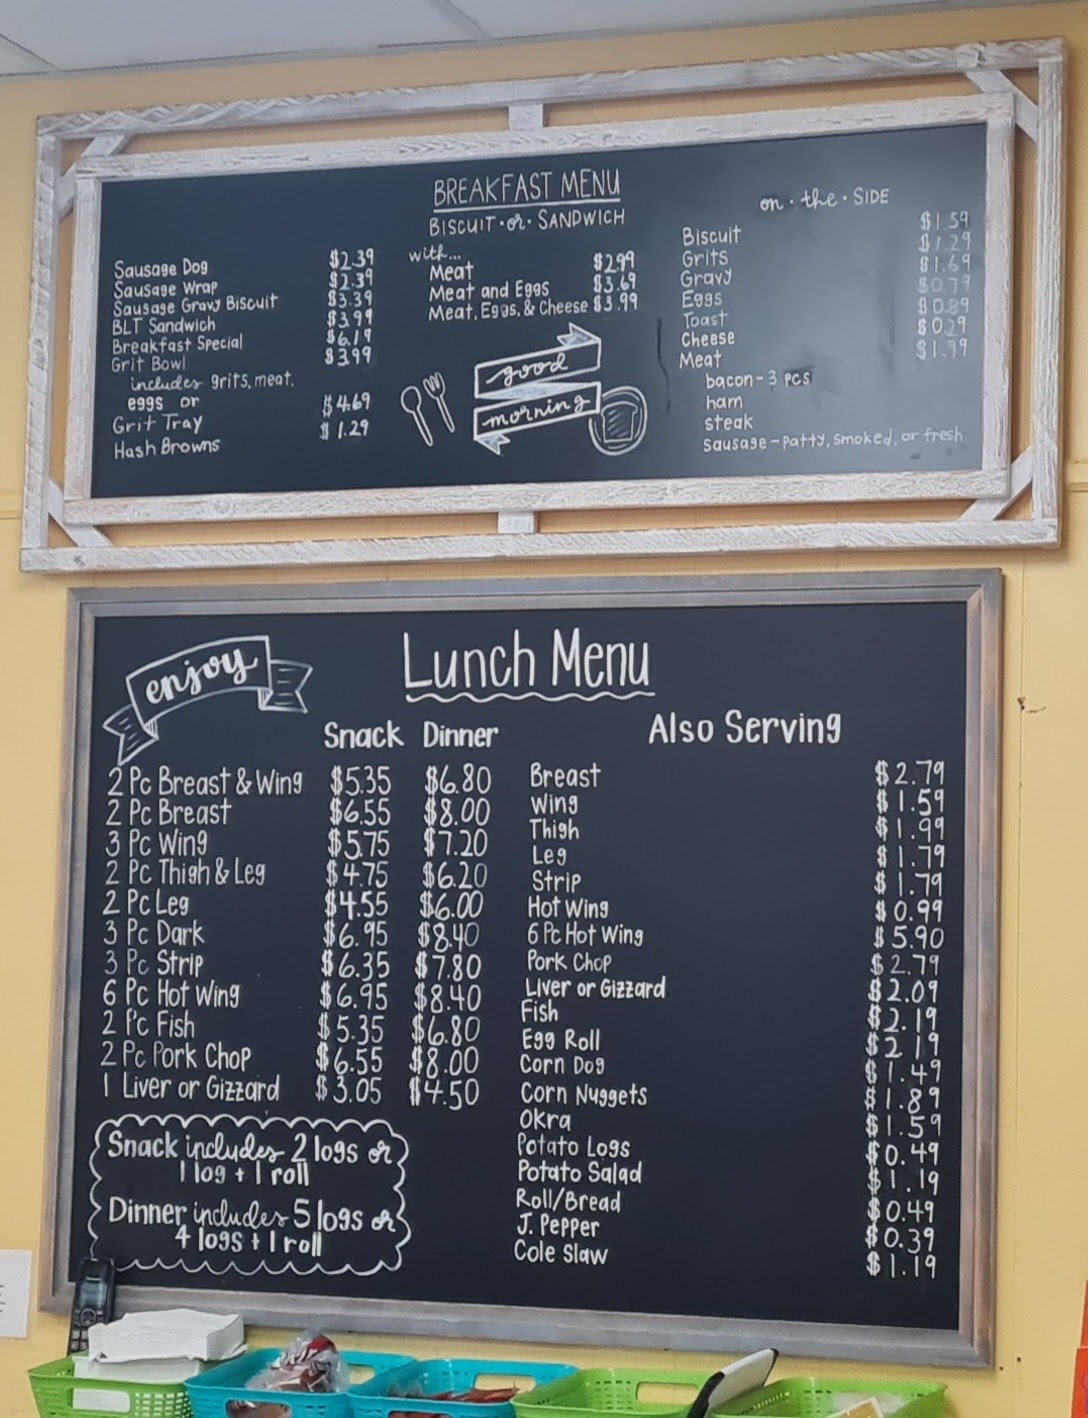 BREAKFAST MENU
BISCUIT • or • SANDWICH
Sausage Dog $2.39
Sausage Wrap $2.39
Sausage Gravy Biscuit $3.39
BLT Sandwich $3.99
Breakfast Special $6.19
Grit Bowl $3.99
includes grits, meat,
eggs or
Grit Tray $4.69
Hash Browns $1.29
with...
Meat $2.99
Meat and Eggs $3.69
Meat, Eggs, & Cheese $3.99
good
morning
on • the • SIDE
Biscuit $1.59
Grits $1.29
Gravy $1.69
Eggs $0.79
Toast $0.89
Cheese $0.29
Meat $1.99
bacon - 3 pcs
ham
steak
sausage - patty, smoked, or fresh
enjoy
Lunch Menu
Snack Dinner
2 Pc Breast & Wing $5.35 $6.80
2 Pc Breast $6.55 $8.00
3 Pc Wing $5.75 $7.20
2 Pc Thigh & Leg $4.75 $6.20
2 Pc Leg $4.55 $6.00
3 Pc Dark $6.95 $8.40
3 Pc Strip $6.35 $7.80
6 Pc Hot Wing $6.95 $8.40
2 Pc Fish $5.35 $6.80
2 Pc Pork Chop $6.55 $8.00
1 Liver or Gizzard $3.05 $4.50
Snack includes 2 logs or
1 log + 1 roll
Dinner includes 5 logs or
4 logs + 1 roll
Also Serving
Breast $2.79
Wing $1.59
Thigh $1.99
Leg $1.79
Strip $1.79
Hot Wing $0.99
6 Pc Hot Wing $5.90
Pork Chop $2.79
Liver or Gizzard $2.09
Fish $2.19
Egg Roll $2.19
Corn Dog $1.49
Corn Nuggets $1.89
Okra $1.59
Potato Logs $0.49
Potato Salad $1.19
Roll/Bread $0.49
J. Pepper $0.39
Cole Slaw $1.19